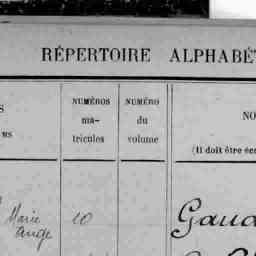 RÉPERTOIRE ALPHABÉ
NUMÉROS
ma-
tricules
NUMÉRO
du
volume
NO
(Il doit être éc
MS
Marie
ange
10
Gaud